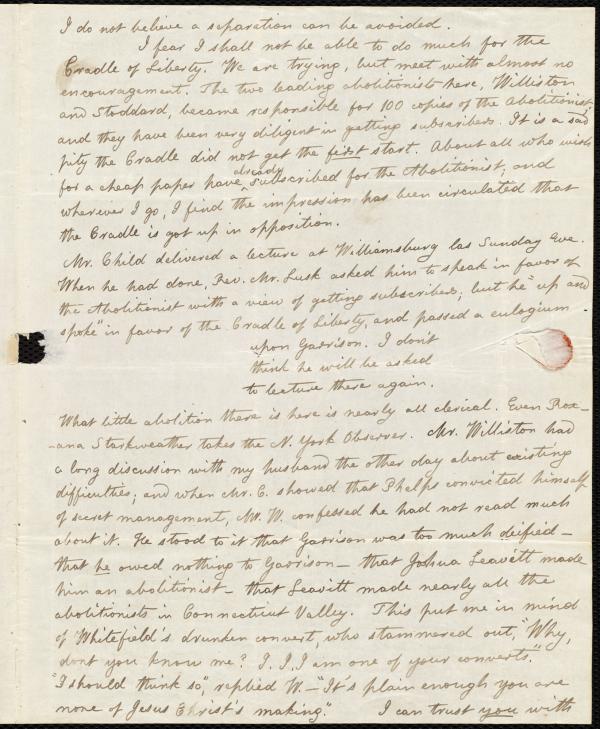 I do not believe a separation can be avoided.
I fear I shall not be able to do much for the
Cradle of Liberty. We are trying, but meet with almost no
encouragement. The two leading abolitionists here, Williston
and Stoddard, became responsible for 100 copies of the Abolitionist,
and they have been very diligent in getting subscribers. It is a sad
pity the Cradle did not get the first start. About all who wish
for a cheap paper have already subscribed for the Abolitionist; and
wherever I go, I find the impression has been circulated that
the Cradle is got up in opposition.
Mr. Child delivered a lecture at Williamsburg las Sunday Eve.
When he had done, Rev. Mr. Lusk asked him to speak in favor of
the Abolitionist with a view of getting subscribers; but he "up and
spoke" in favor of the Cradle of Liberty, and passed a eulogium
upon Garrison. I dont
think he will be asked
to lecture there again.
What little abolition there is here is nearly all clerical. Even Rox-
-ana Starkweather takes the N. York Observer. Mr. Williston had
a long discussion with my husband the other day about existing
difficulties; and when Mr. C. showed that Phelps convicted himself
of secret management, Mr. W. confessed he had not read much
about it. He stood to it that Garrison was too much deified -
that he owed nothing to Garrison - that Joshua Leavitt made
him an abolitionist - that Leavitt made nearly all the
abolitionists in Connecticut Valley. This put me in mind
of Whitefield's drunken convert, who stammered out, "Why,
dont you know me? I. I. I am one of your converts."
"I should think so", replied W. - "It's plain enough you are
none of Jesus Christ's making". I can trust you with